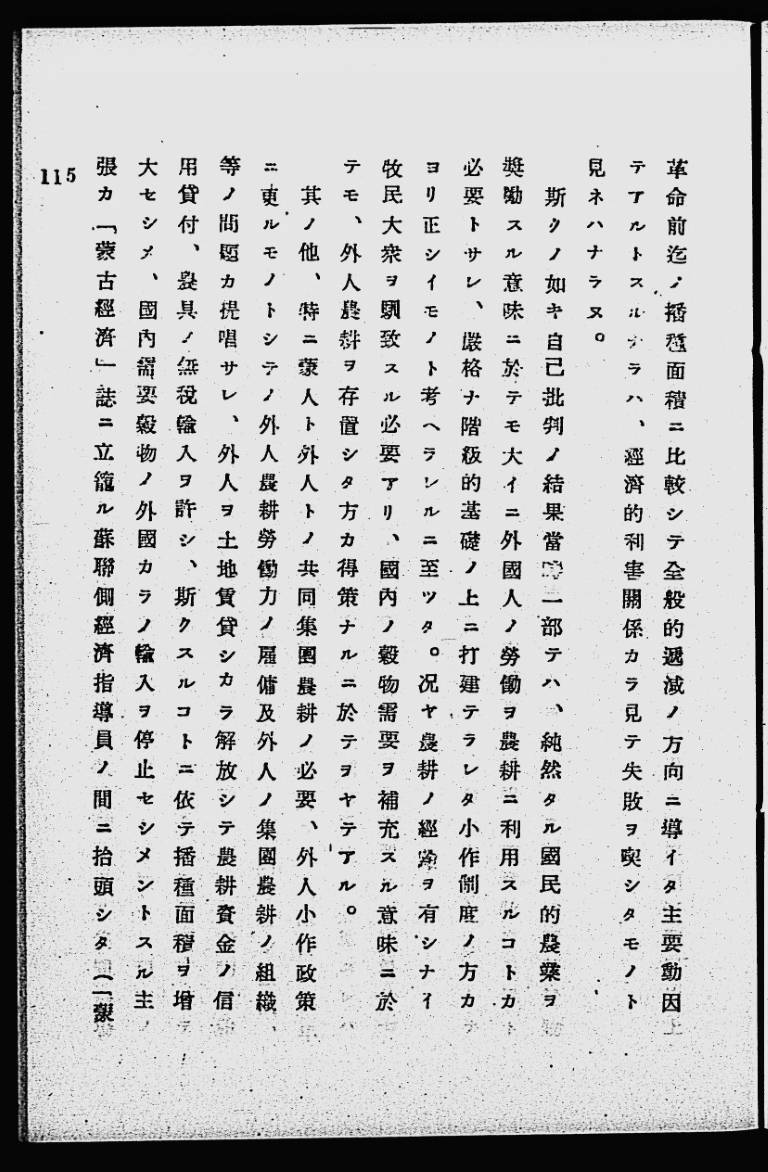 革命前迄ノ播種面積ニ比較シテ全般的遞減ノ方向ニ導イタ主要動因
テアルトスルナラハ、經濟的利害關係カラ見テ失敗ヲ喫シタモノト
見ネハナラヌ。
斯クノ如キ自己批判ノ結果當時一部テハ、純然タル國民的農業ヲ
奬勵スル意味ニ於テモ大イニ外國人ノ勞働ヲ農耕ニ利用スルコトカ
必要トサレ、嚴格ナ階級的基礎ノ上ニ打建テラレタ小作制度ノ方カ
ヨリ正シイモノト考ヘラレルニ至ツタ。況ヤ農耕ノ經驗ヲ有シナイ
牧民大衆ヲ馴致スル必要アリ、國内ノ穀物需要ヲ補充スル意味ニ於
テモ、外人農耕ヲ存置シタ方カ得策ナルニ於テヲヤテアル。
其ノ他、特ニ蒙人ト外人トノ共同集團農耕ノ必要、外人小作政策
ニ更ルモノトシテノ外人農耕勞働力ノ雇傭及外人ノ集團農耕ノ組織
等ノ問題カ提唱サレ、外人ヲ土地賃貸シカラ解放シテ農耕資金ノ信
用貸付、農具ノ無稅輸入ヲ許シ、斯クスルコトニ依テ播種面積ヲ增
大セシメ、國内需要穀物ノ外國カラノ輸入ヲ停止セシメントスル主
張カ「蒙古經濟」誌ニ立籠ル蘇聯側經濟指導員ノ間ニ抬頭シタ(「蒙
115